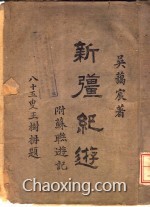 吳藹宸著
新疆紀遊
附蘇聯遊記
八十五叟王樹枏題
Chaoxing.com